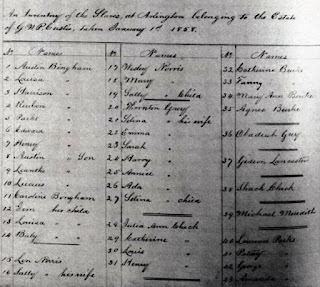 An Inventory of the Slaves, at Arlington belonging to the Estate
of G W P Custis, taken January 1st 1858.
Names
1 Austin Bingham
2 Louisa "
3 Harrison "
4 Reuben "
5 Parks "
6 Edward "
7 Henry "
8 Austin " Son
9 Leanthe "
10 Lucius "
11 Caroline Bingham
12 Tom his child
13 Louisa "
14 Baby "
15 Len Norris
16 Sally " his wife
Names
17 Wesley Norris
18 Mary "
19 Sally " Child
20 Thornton Gray
21 Selina " his wife
22 Emma "
23 Sarah "
24 Harry "
25 Annice "
26 Ada "
27 Selina " child
28 Julia Ann Check
29 Catherine "
30 Louis "
31 Henry "
Names
32 Catherine Burke
33 Fanny "
34 Mary Ann Burke
35 Agnes Burke
36 Obadiah Gray
37 Gideon Lancaster
38 Shack Check
39 Michael Meredith
40 Lawrence Parks
41 Patsey "
42 George "
43 Amanda "